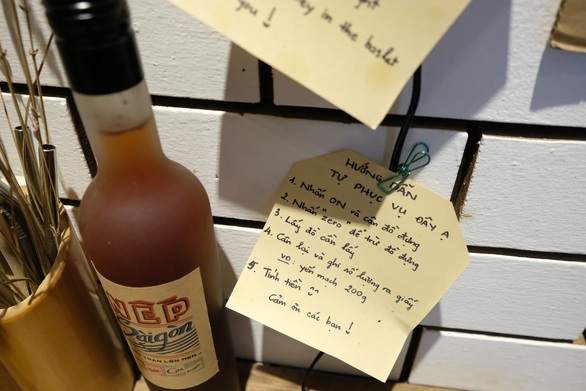 ney in the basket
you !
HƯỚNG DẪN
TỰ PHỤC VỤ ĐÂY Ạ
1. Nhấn ON và cân đồ đựng
2. Nhấn zero để trừ đồ đựng
3. Lấy đồ cần lấy
4. Cân lại và ghi số lượng ra giấy
VD: yến mạch 200g
5. Tính tiền
Cảm ơn các bạn !
NẾP
Saigon